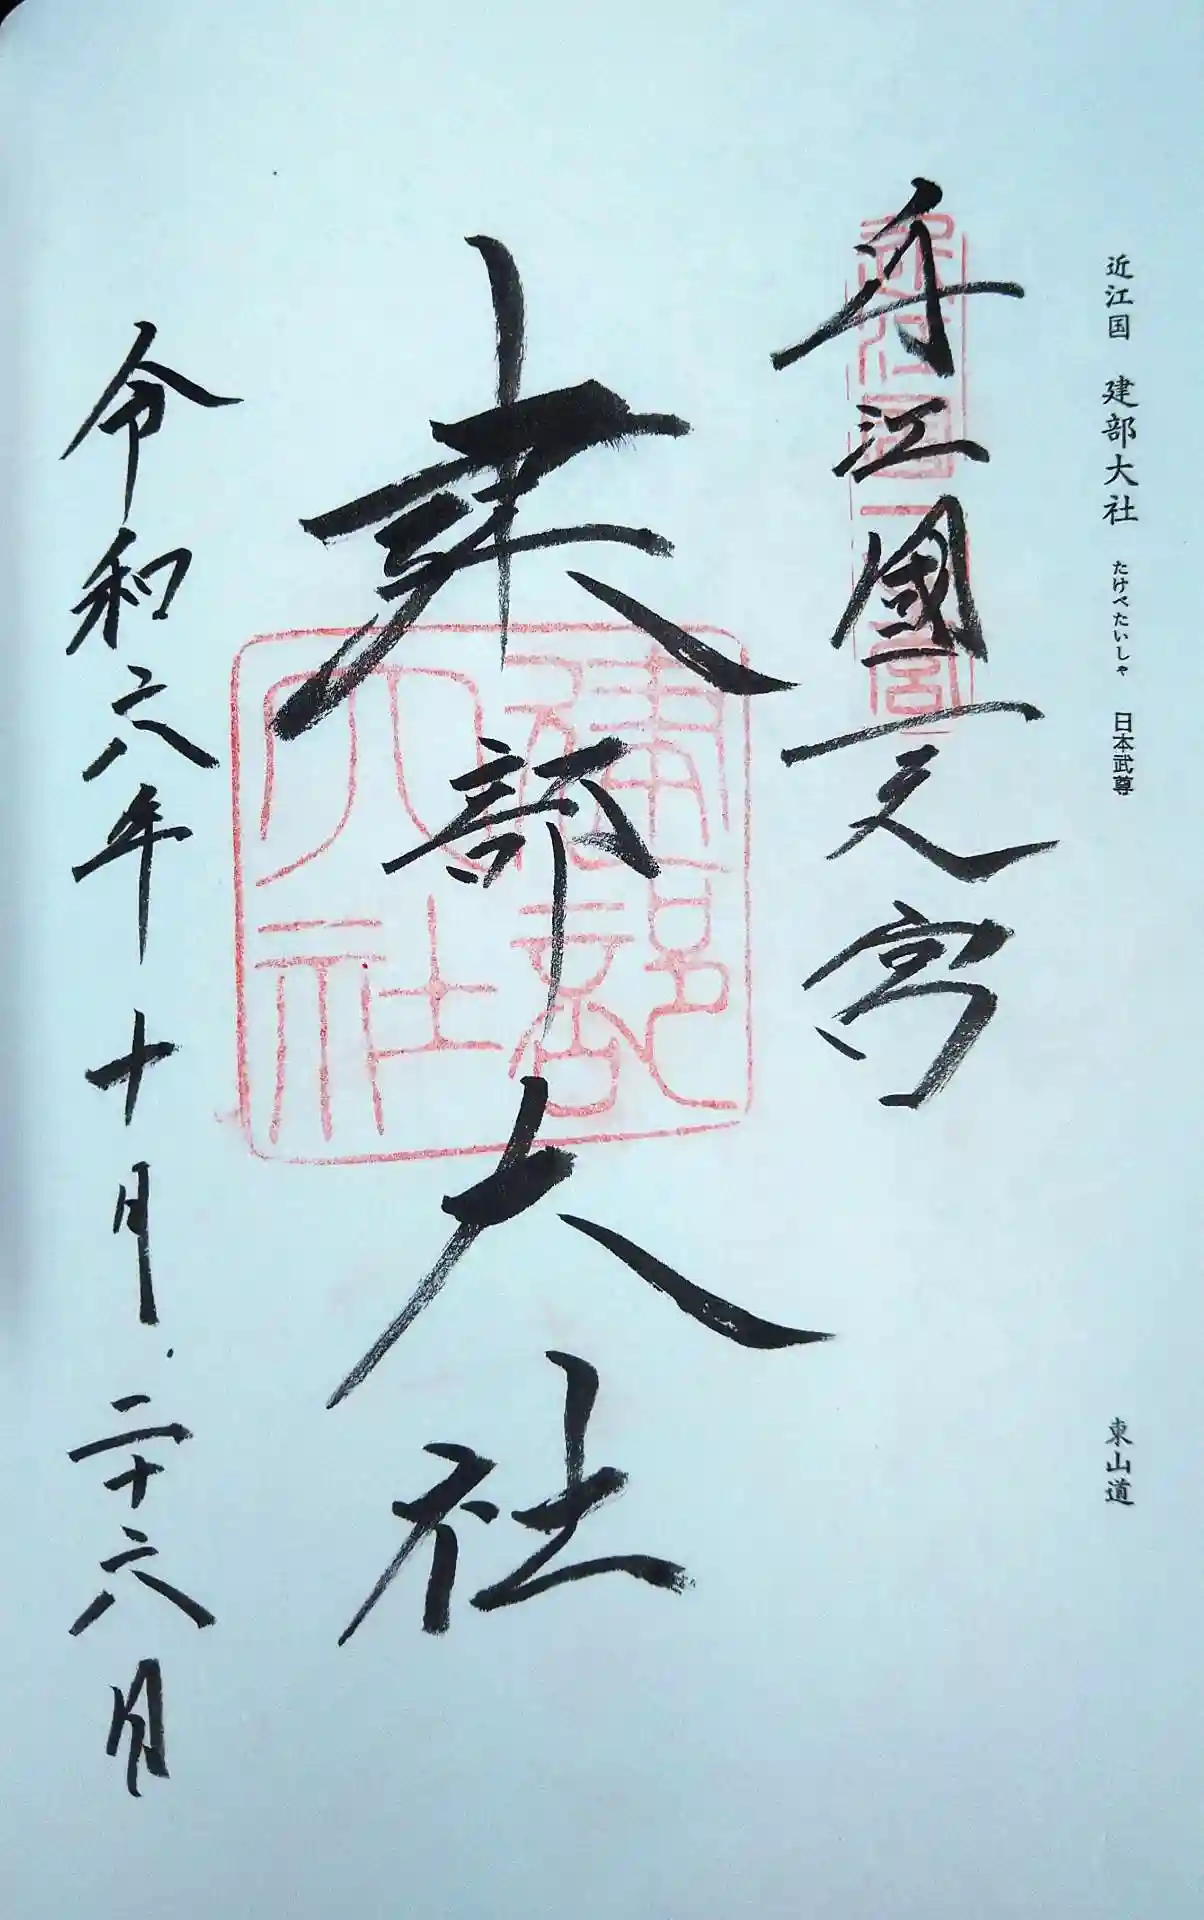 近江国 建部大社 たけべたいしゃ 日本武尊 東山道
近江國一之宮
近江国一之宮
建部大社
建部大社
令和六年十月二十六日